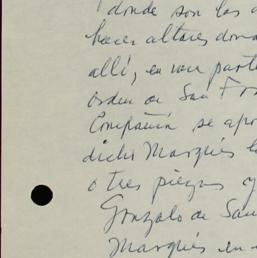 donde son las
hacer altares
allí, en una
orden de San
Compañía se
dicho Marqués
otras piezas
Gonzalo de
Marqués en